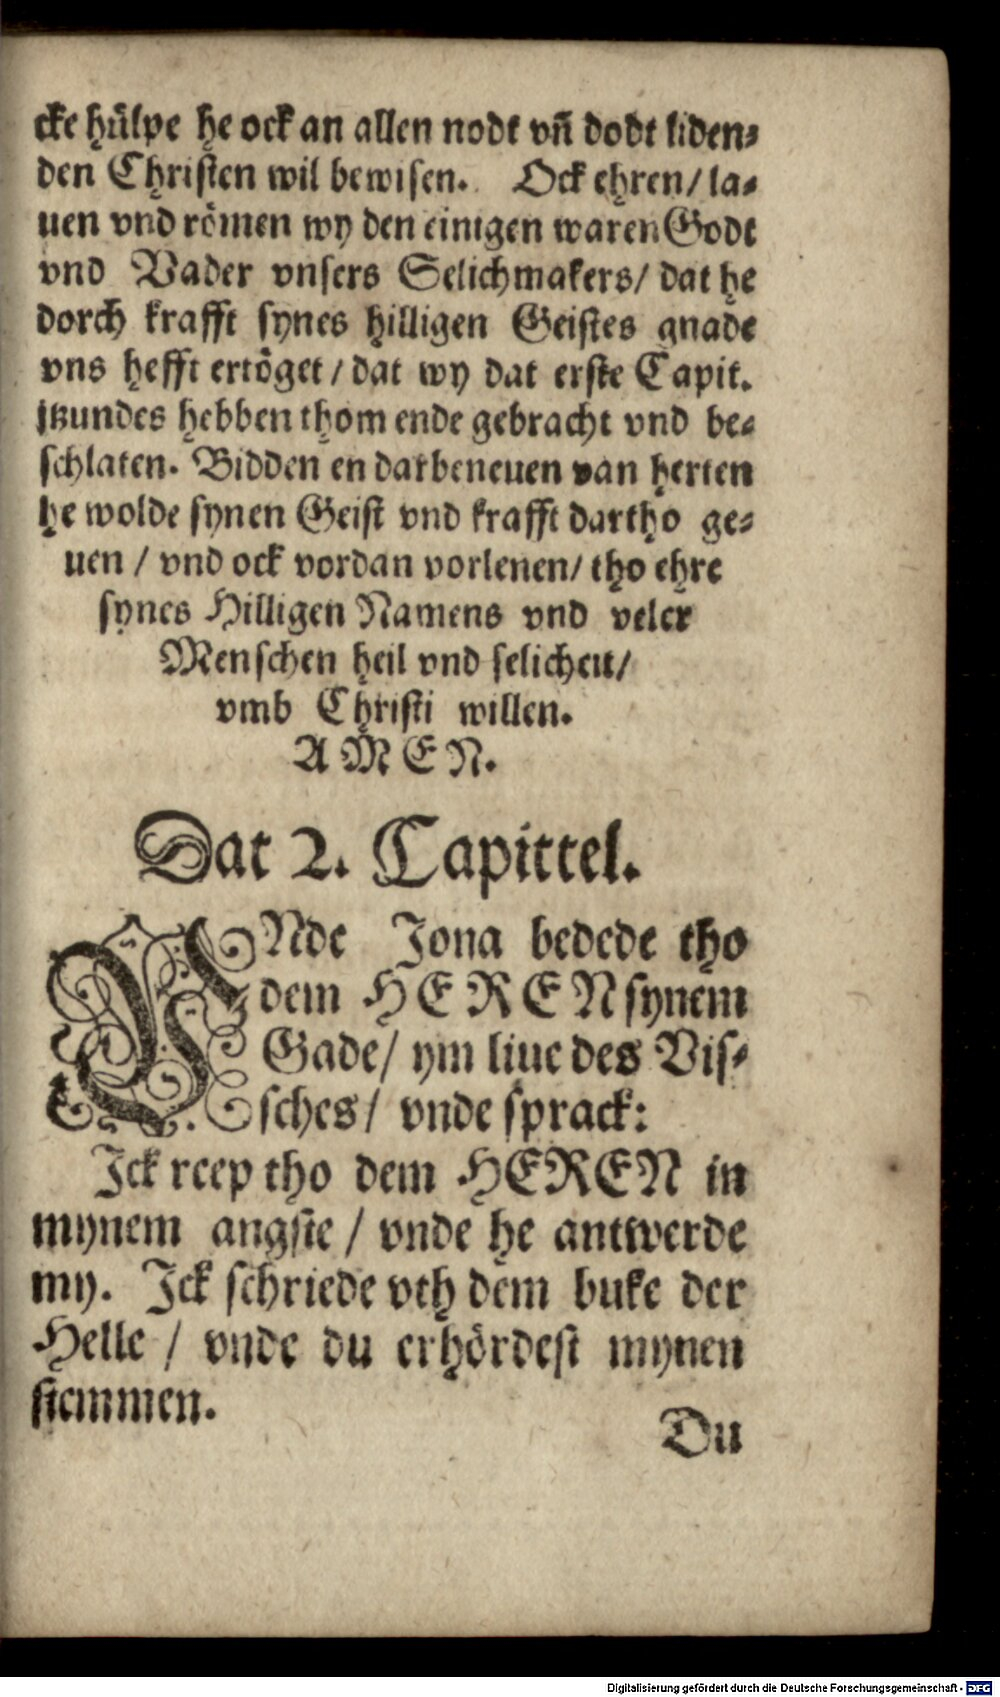 cke hülpe he ock an allen nodt vñ dodt liden⸗
den Christen wil bewisen. Ock ehren/ la⸗
uen vnd römen wy den einigen waren Godt
vnd Vader vnsers Selichmakers/ dat he
dorch krafft synes hilligen Geistes gnade
vns hefft ertöget / dat wy dat erste Capit.
itzundes hebben thom ende gebracht vnd be⸗
schlaten. Bidden en darbeneuen van herten
he wolde synen Geist vnd krafft dartho ge⸗
uen / vnd ock vordan vorlenen/ tho ehre
synes Hilligen Namens vnd veler
Menschen heil vnd selicheit/
vmb Christi willen.
AMEN.
Dat 2. Capittel.
VNde Jona bedede tho
dem HEREN synem
Gade/ ym liue des Vis⸗
sches/ vnde sprack:
Ick reep tho dem HEREN in
mynem angste / vnde he antwerde
my. Ick schriede vth dem buke der
Helle / vnde du erhördest mynen
stemmen.
Du
Digitalisierung gefördert durch die Deutsche Forschungsgemeinschaft - DFG